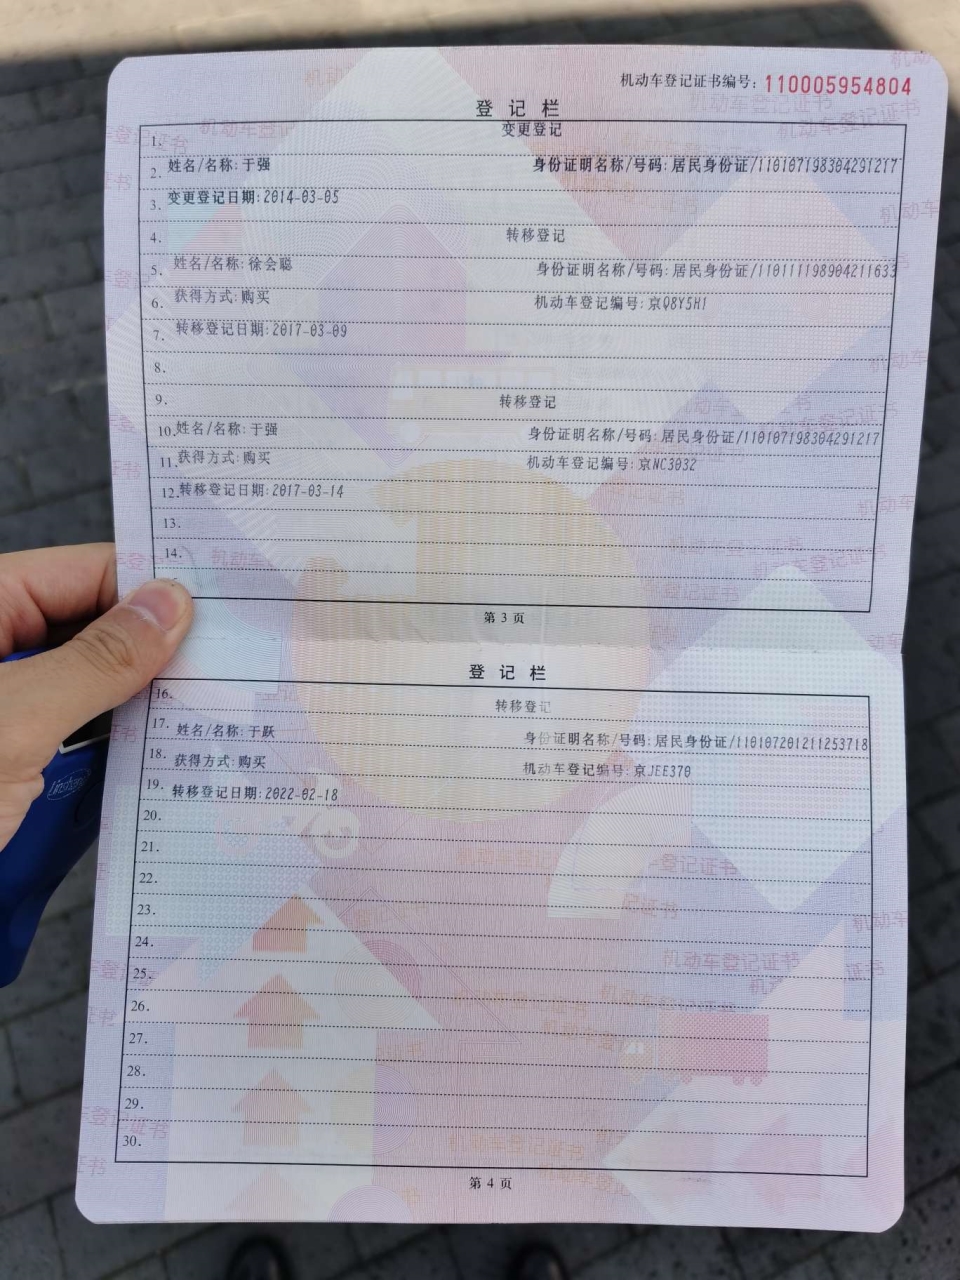 机动车登记证书编号：110005954804
登记栏
1. 变更登记
2. 姓名/名称:于强 身份证明名称/号码:居民身份证/110107198304291217
3. 变更登记日期:2014-03-05
4. 转移登记
5. 姓名/名称:徐会聪 身份证明名称/号码:居民身份证/110111198904211633
6. 获得方式:购买 机动车登记编号:京Q8Y5H1
7. 转移登记日期:2017-03-09
8.
9. 转移登记
10. 姓名/名称:于强 身份证明名称/号码:居民身份证/110107198304291217
11. 获得方式:购买 机动车登记编号:京NC3032
12. 转移登记日期:2017-03-14
13.
14.
第 3 页
登记栏
16. 转移登记
17. 姓名/名称:于跃 身份证明名称/号码:居民身份证/110107201211253718
18. 获得方式:购买 机动车登记编号:京JEE370
19. 转移登记日期:2022-02-18
20.
21.
22.
23.
24.
25.
26.
27.
28.
29.
30.
第 4 页